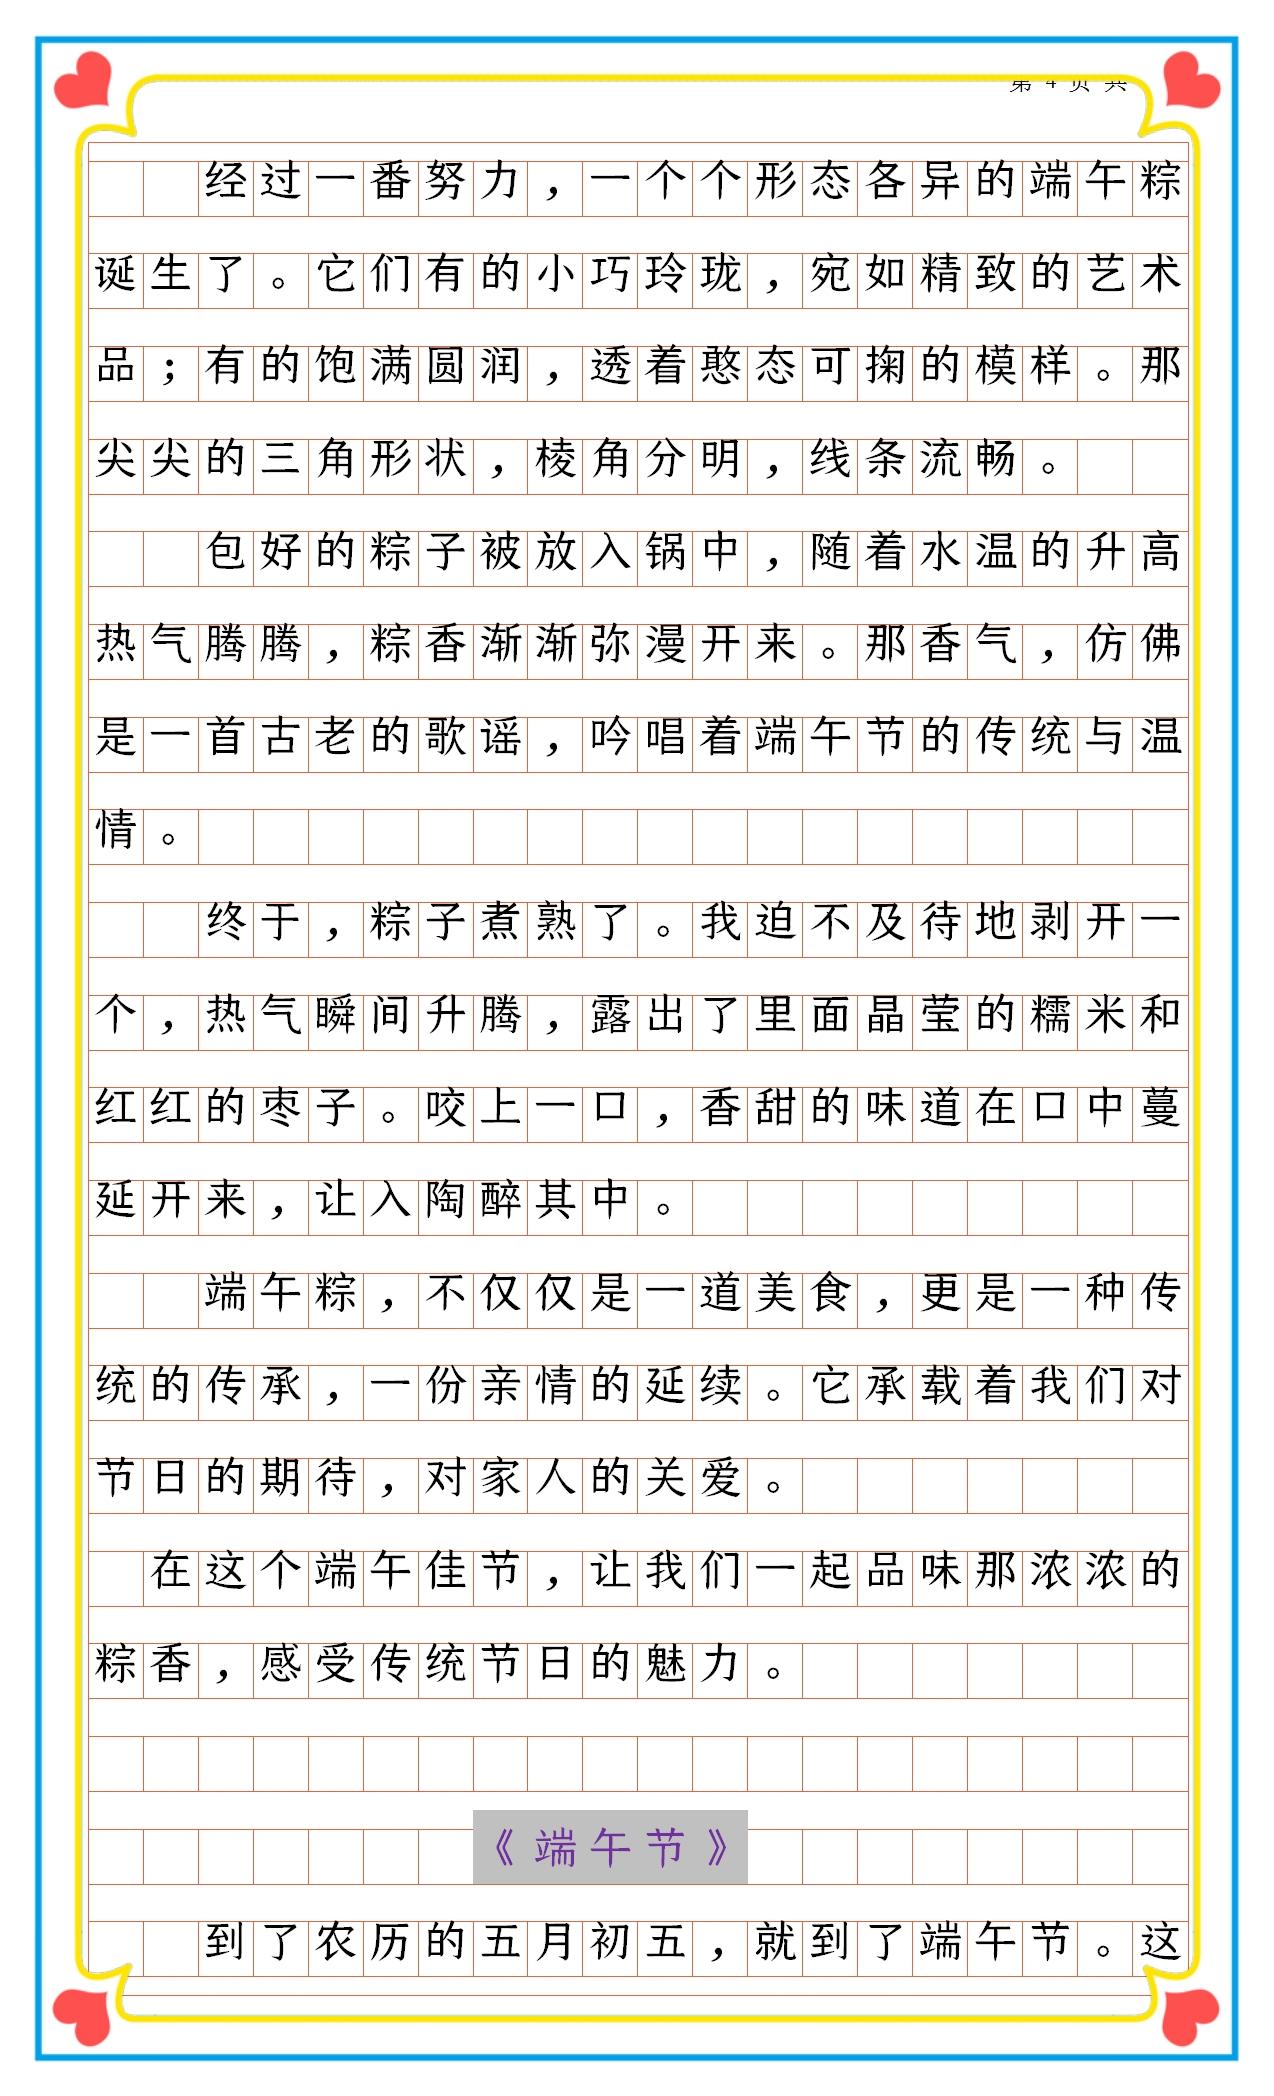 第 4 页 共
经过一番努力，一个个形态各异的端午粽
诞生了。它们有的小巧玲珑，宛如精致的艺术
品；有的饱满圆润，透着憨态可掬的模样。那
尖尖的三角形状，棱角分明，线条流畅。
包好的粽子被放入锅中，随着水温的升高
热气腾腾，粽香渐渐弥漫开来。那香气，仿佛
是一首古老的歌谣，吟唱着端午节的传统与温
情。
终于，粽子煮熟了。我迫不及待地剥开一
个，热气瞬间升腾，露出了里面晶莹的糯米和
红红的枣子。咬上一口，香甜的味道在口中蔓
延开来，让入陶醉其中。
端午粽，不仅仅是一道美食，更是一种传
统的传承，一份亲情的延续。它承载着我们对
节日的期待，对家人的关爱。
在这个端午佳节，让我们一起品味那浓浓的
粽香，感受传统节日的魅力。
《端午节》
到了农历的五月初五，就到了端午节。这